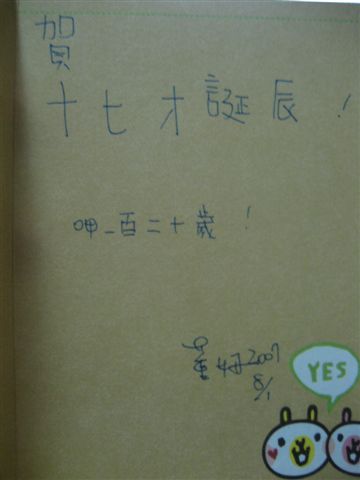 賀
十七才誕辰！
呷一百二十歲！
2007
8/1
YES